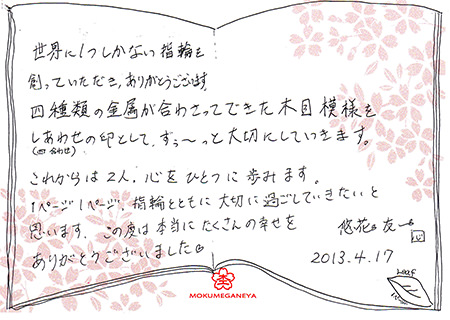 世界に1つしかない指輪を
創っていただき、ありがとうございます。
四種類の金属が合わさってできた木目模様を
しあわせの印として、ずぅ〜っと大切にしていきます。
(四合わせ)
これからは2人、心をひとつに歩みます。
1ページ1ページ、指輪とともに大切に過ごしていきたいと
思います。この度は本当にたくさんの幸せを
ありがとうございました
悠花 友一
2013.4.17
Leaf
MOKUMEGANEYA